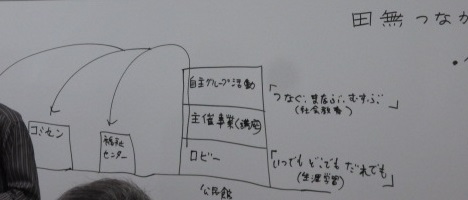 田無つなが
自主グループ活動
「つなぐ、まなぶ、むすぶ」
(社会教育)
主催事業(講座)
コミセン
福祉
センター
ロビー
「いつでも どこでも だれでも」
(生涯学習)
公民館